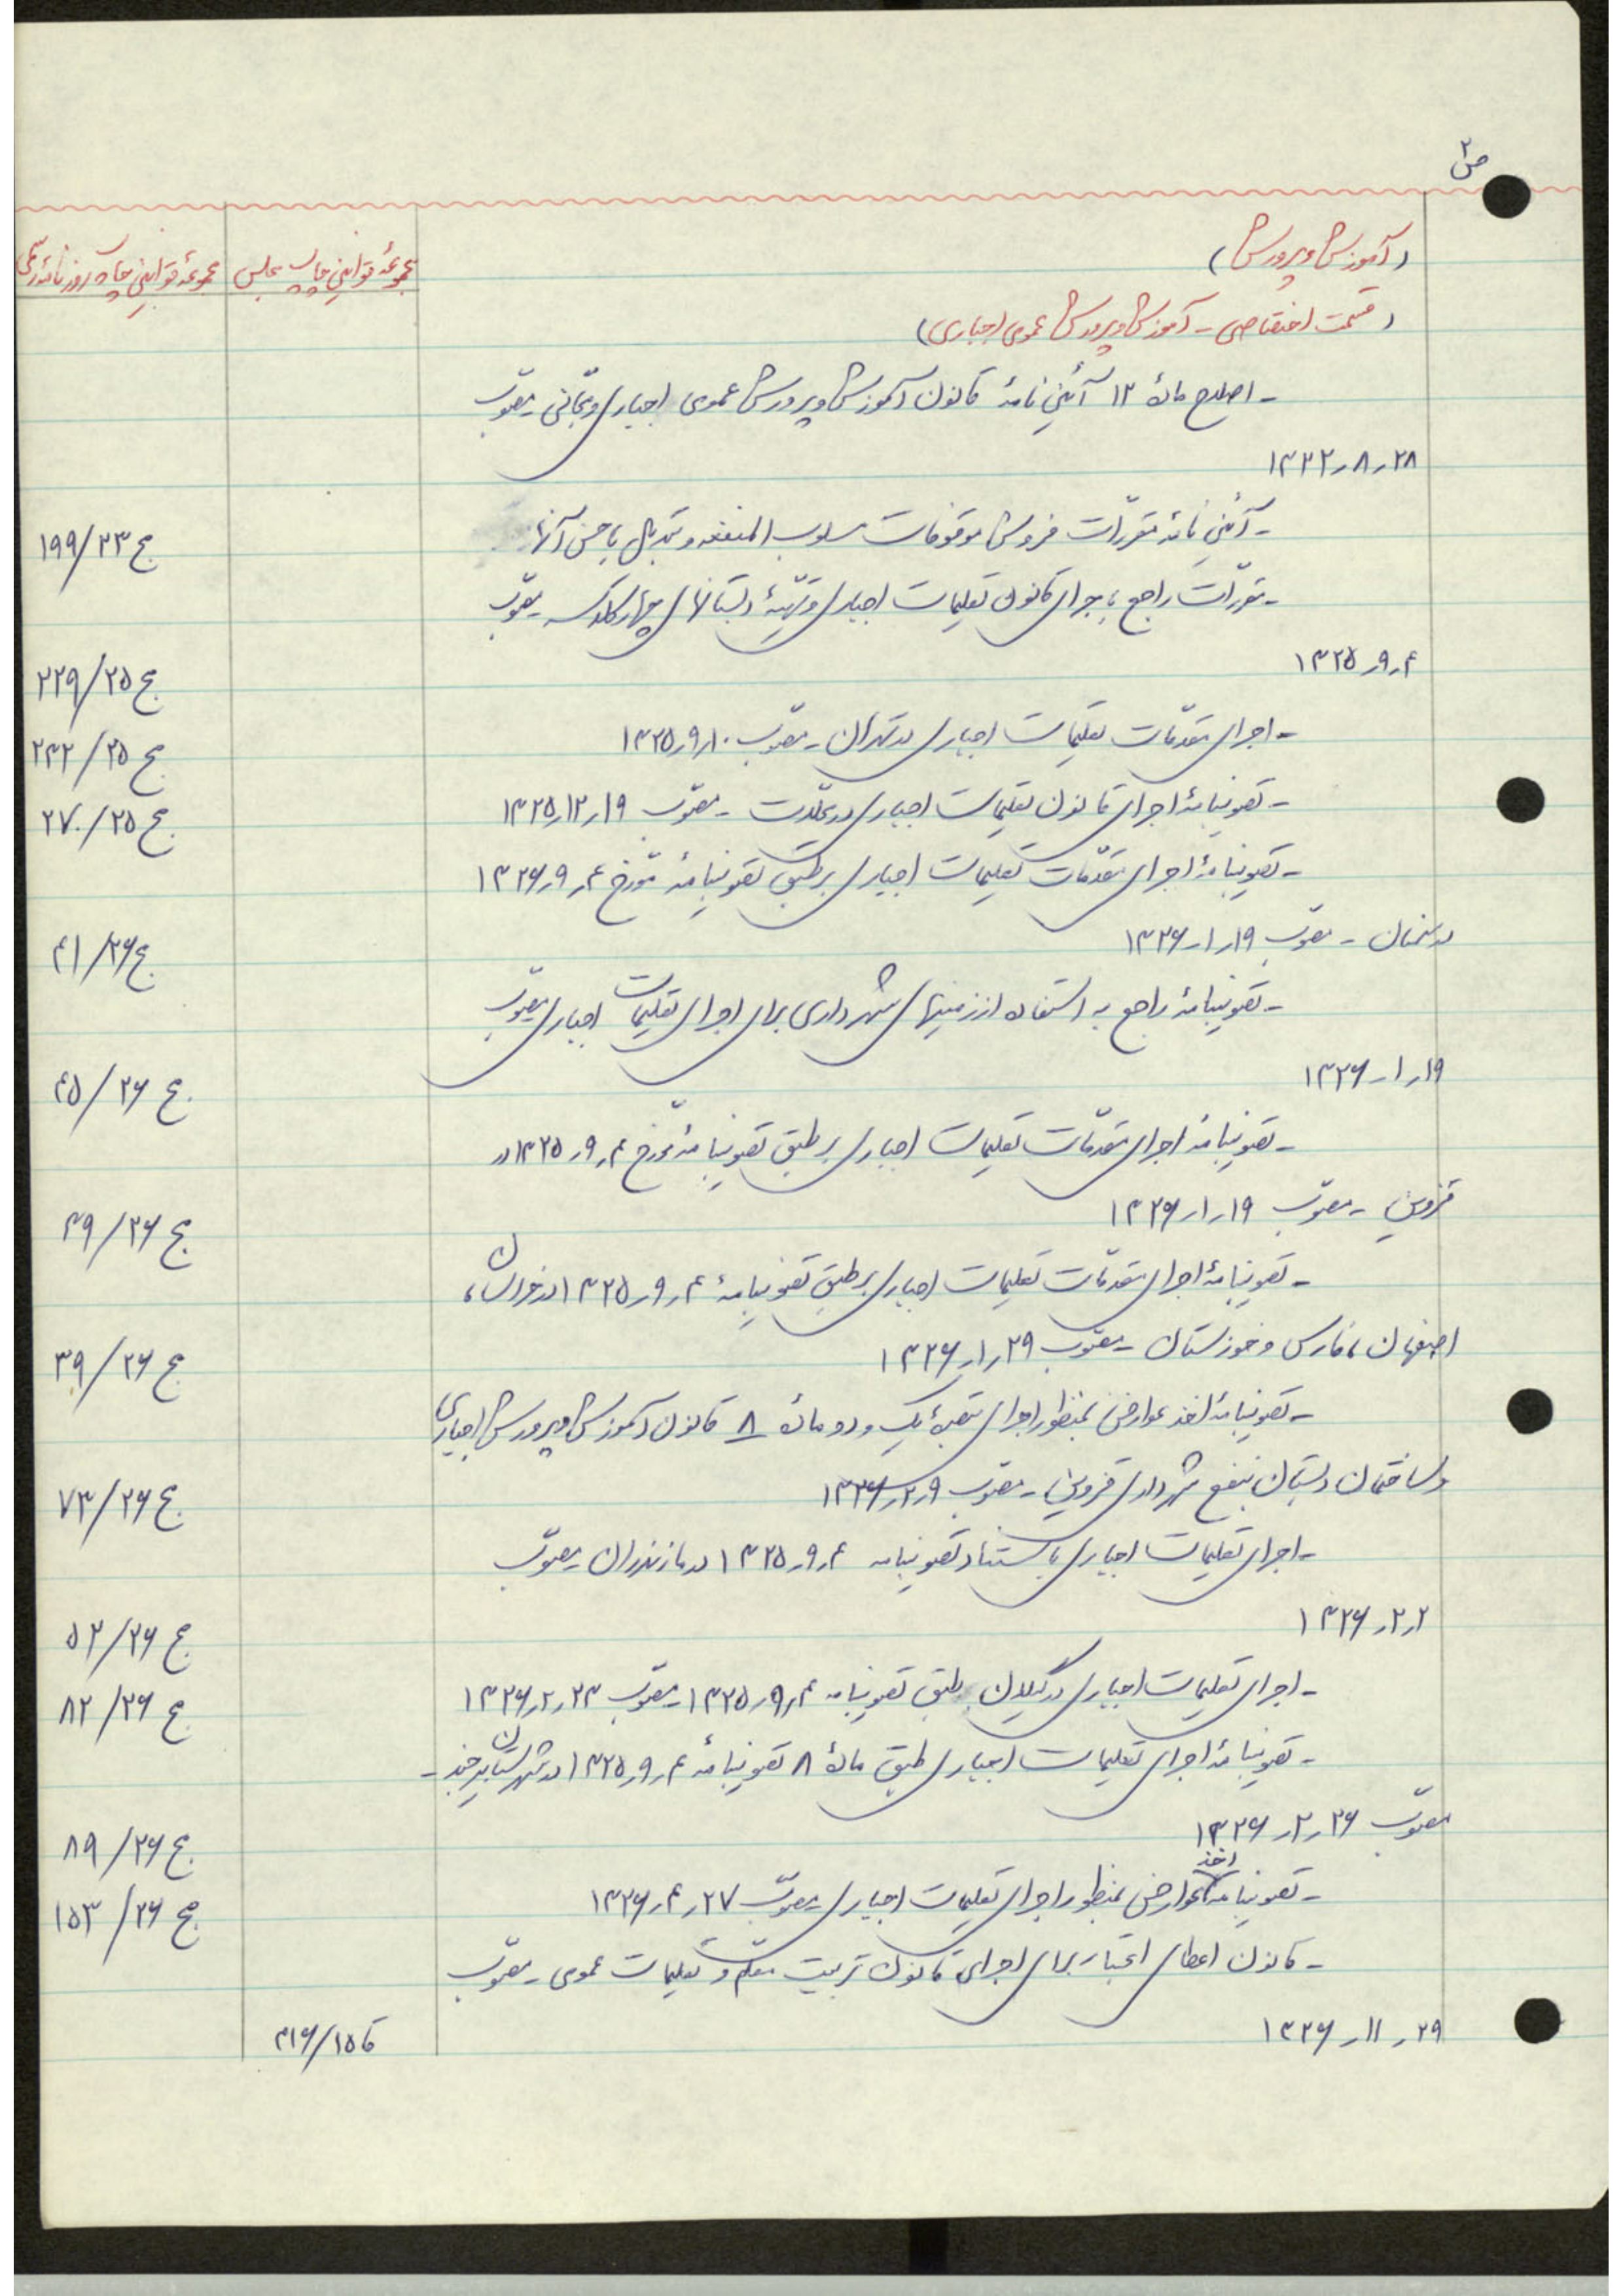 ص ۲
(آموزش و پرورش)
مجموعهٔ قوانین چاپ مجلس
مجموعهٔ قوانین چاپ روزنامهٔ رسمی
(قسمت اختصاصی - آموزش و پرورش عمومی اجباری)
- اصلاح مادهٔ ۱۲ آئین نامهٔ قانون آموزش و پرورش عمومی اجباری و مجّانی مصوّب
۲۸ر۸ر۱۳۲۲
- آئین نامهٔ مقرّرات فروش موقوفات مسلوب المنفعه و تبدیل باحسن آنها
ج ۱۹۹/۲۳
- مقرّرات راجع باجرای قانون تعلیمات اجباری و تهیّهٔ دبستانهای چهار کلاسه مصوّب
۴ر۹ر۱۳۲۵
ج ۲۲۹/۲۵
- اجرای مقدّمات تعلیمات اجباری در تهران - مصوّب ۱۰ر۹ر۱۳۲۵
ج ۲۳۲/۲۵
- تصویبنامهٔ اجرای قانون تعلیمات اجباری در محلّات - مصوّب ۱۹ر۱۲ر۱۳۲۵
ج ۲۷۰/۲۵
- تصویبنامهٔ اجرای مقدّمات تعلیمات اجباری بر طبق تصویبنامهٔ مورّخ ۴ر۹ر۱۳۲۶
در سمنان - مصوّب ۱۹ر۱ر۱۳۲۶
ج ۴۱/۲۶
- تصویبنامهٔ راجع به استفاده از زمینهای شهرداری برای اجرای تعلیمات اجباری مصوّب
۱۹ر۱ر۱۳۲۶
ج ۴۵/۲۶
- تصویبنامهٔ اجرای مقدّمات تعلیمات اجباری بر طبق تصویبنامهٔ مورّخ ۴ر۹ر۱۳۲۵ در
قزوین - مصوّب ۱۹ر۱ر۱۳۲۶
ج ۴۹/۲۶
- تصویبنامهٔ اجرای مقدّمات تعلیمات اجباری بر طبق تصویبنامهٔ ۴ر۹ر۱۳۲۵ در خراسان،
اصفهان، فارس و خوزستان - مصوّب ۲۹ر۱ر۱۳۲۶
ج ۳۹/۲۶
- تصویبنامهٔ اخذ عوارض بمنظور اجرای تبصرهٔ یک و دو مادهٔ ۸ قانون آموزش و پرورش اجباری
و ساختمان دبستان بنفع شهرداری قزوین - مصوّب ۹ر۲ر۱۳۲۶
ج ۷۳/۲۶
- اجرای تعلیمات اجباری باستناد تصویبنامه ۴ر۹ر۱۳۲۵ در مازندران مصوّب
۲ر۲ر۱۳۲۶
ج ۵۲/۲۶
- اجرای تعلیمات اجباری در گیلان بطبق تصویبنامه ۴ر۹ر۱۳۲۵ - مصوّب ۲۳ر۲ر۱۳۲۶
ج ۸۲/۲۶
- تصویبنامهٔ اجرای تعلیمات اجباری طبق مادهٔ ۸ تصویبنامهٔ ۴ر۹ر۱۳۲۵ در شهرستان بیرجند -
مصوّب ۲۶ر۲ر۱۳۲۶
ج ۸۹/۲۶
- تصویبنامه اخذ عوارض بمنظور اجرای تعلیمات اجباری - مصوّب ۲۷ر۴ر۱۳۲۶
ج ۱۵۳/۲۶
- قانون اعطای اعتبار برای اجرای قانون تربیت معلّم و تعلیمات عمومی - مصوّب
۲۹ر۱۱ر۱۳۲۶
قا ۴۱۶/۱۵